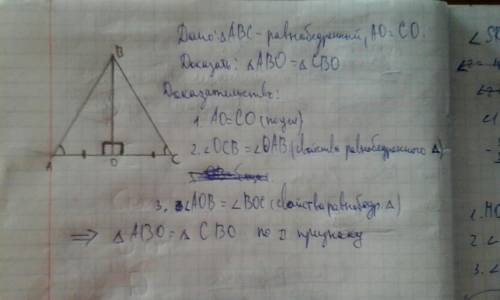 Дано: △ABC - равнобедренный, AO=CO.
Доказать: △ABO = △CBO
Доказательство:
1. AO=CO (по усл)
2. ∠OCB = ∠OAB (свойства равнобедренного △)
3. ∠AOB = ∠BOC (свойства равнобедр. △)
⟹ △ABO = △CBO по II признаку
B
A
O
C